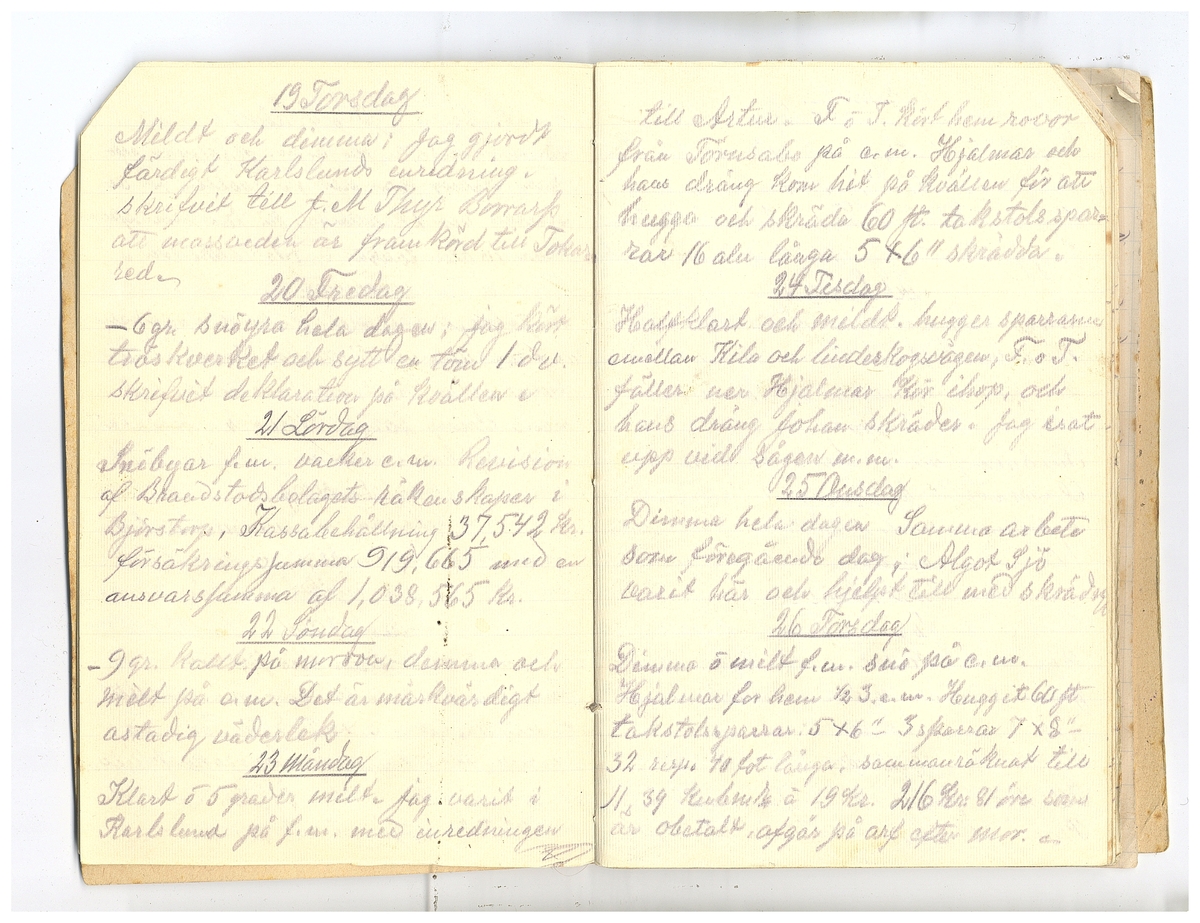 19 Torsdag
Mildt och dimma; Jag gjordt
färdigt Karlslunds inredning.
skrifvit till J. M Thyr Borrarp
att massveden är framkörd till Tokar
red.
20 Fredag
-6 gr. snöyra hela dagen; jag kört
tröskverket och sytt en töm 1 dv.
skrifvit deklaration på kvällen.
21 Lördag
Snöbyar f.m. vacker e.m. Revision
af Brandstodsbolagets räkenskaper i
Björstorp, Kassabehållning 37,542 kr.
försäkringssumma 919,665 med en
ansvarssumma af 1,038,565 kr.
22 Söndag
-9 gr. kallt på morron, dimma och
milt på e.m. Det är märkvärdigt
astadig väderlek.
23 Måndag
Klart ö 5 grader milt. Jag varit i
Karlslund på f.m. med inredningen
till Artur. F ö T. Kört hem rovor
från Törnsabo på e.m. Hjalmar och
hans dräng kom hit på kvällen för att
hugga och skräda 60 ft. takstolsspar-
rar 16 aln långa 5 x 6" skrädda.
24 Tisdag
Halfklart och mildt. hugger sparrarna
emellan Kila och linderkogsvägen, F. o T.
fäller ner Hjalmar Kör ihop, och
hans dräng Johan skräder. Jag isat
upp vid Sågen m.m.
25 Onsdag
Dimma hela dagen Samma arbete
som föregående dag; Algot Sjö
varit här och hjelpt till med skrädn
26 Torsdag
Dimma ö milt f.m. snö på e.m.
Hjalmar for hem ½ 3 e.m. Huggit 60 ft
takstolssparrar 5 x 6" 3 sparrar 7 x 8"
32 resp. 40 fot långa. sammanräknat till
11,39 kubmtr á 19 kr. 216 Kr. 81 öre som
är obetalt. afgår på arf efter mor.